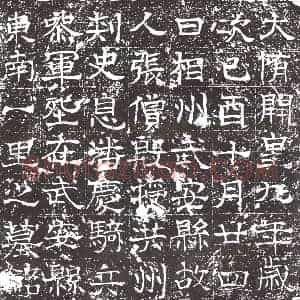 大隋開皇九年歲
次己酉十月廿四
日相州武安縣故
人張僧殷授共州
刾史息潘慶騎兵
叅軍塟在武安縣
東南一里之墓銘